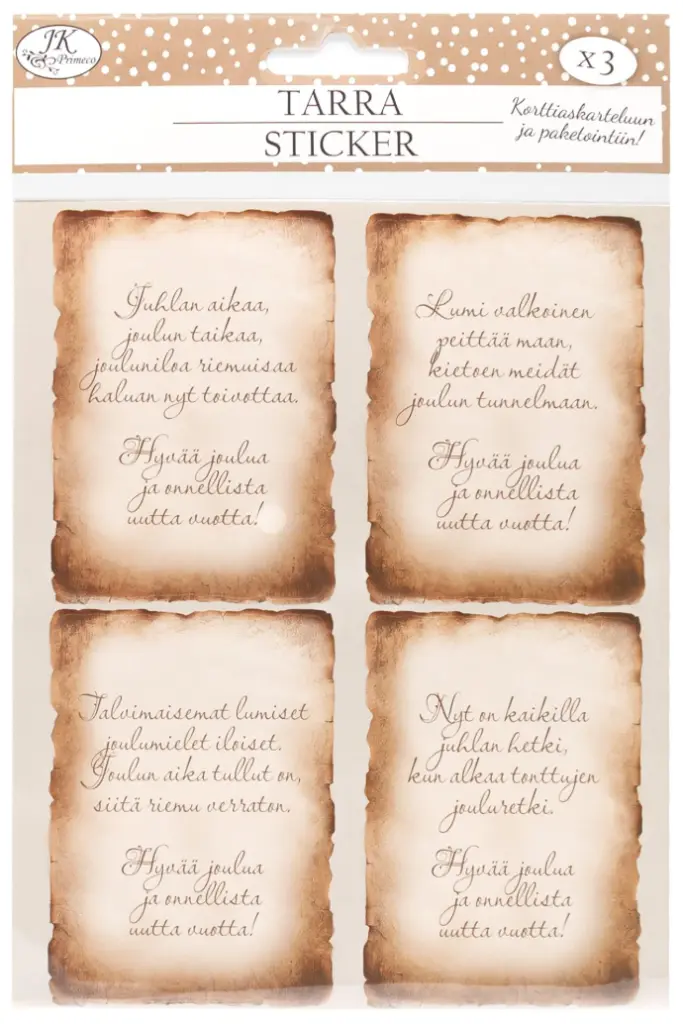 JK
Primeco
x3
TARRA
STICKER
Korttiaskarteluun
ja paketointiin!
Juhlan aikaa,
joulun taikaa,
jouluniloa riemuisaa
haluan nyt toivottaa.
Hyvää joulua
ja onnellista
uutta vuotta!
Lumi valkoinen
peittää maan,
kietoen meidät
joulun tunnelmaan.
Hyvää joulua
ja onnellista
uutta vuotta!
Talvimaisemat lumiset
joulumielet iloiset.
Joulun aika tullut on,
siitä riemu verraton.
Hyvää joulua
ja onnellista
uutta vuotta!
Nyt on kaikilla
juhlan hetki,
kun alkaa tonttujen
jouluretki.
Hyvää joulua
ja onnellista
uutta vuotta!